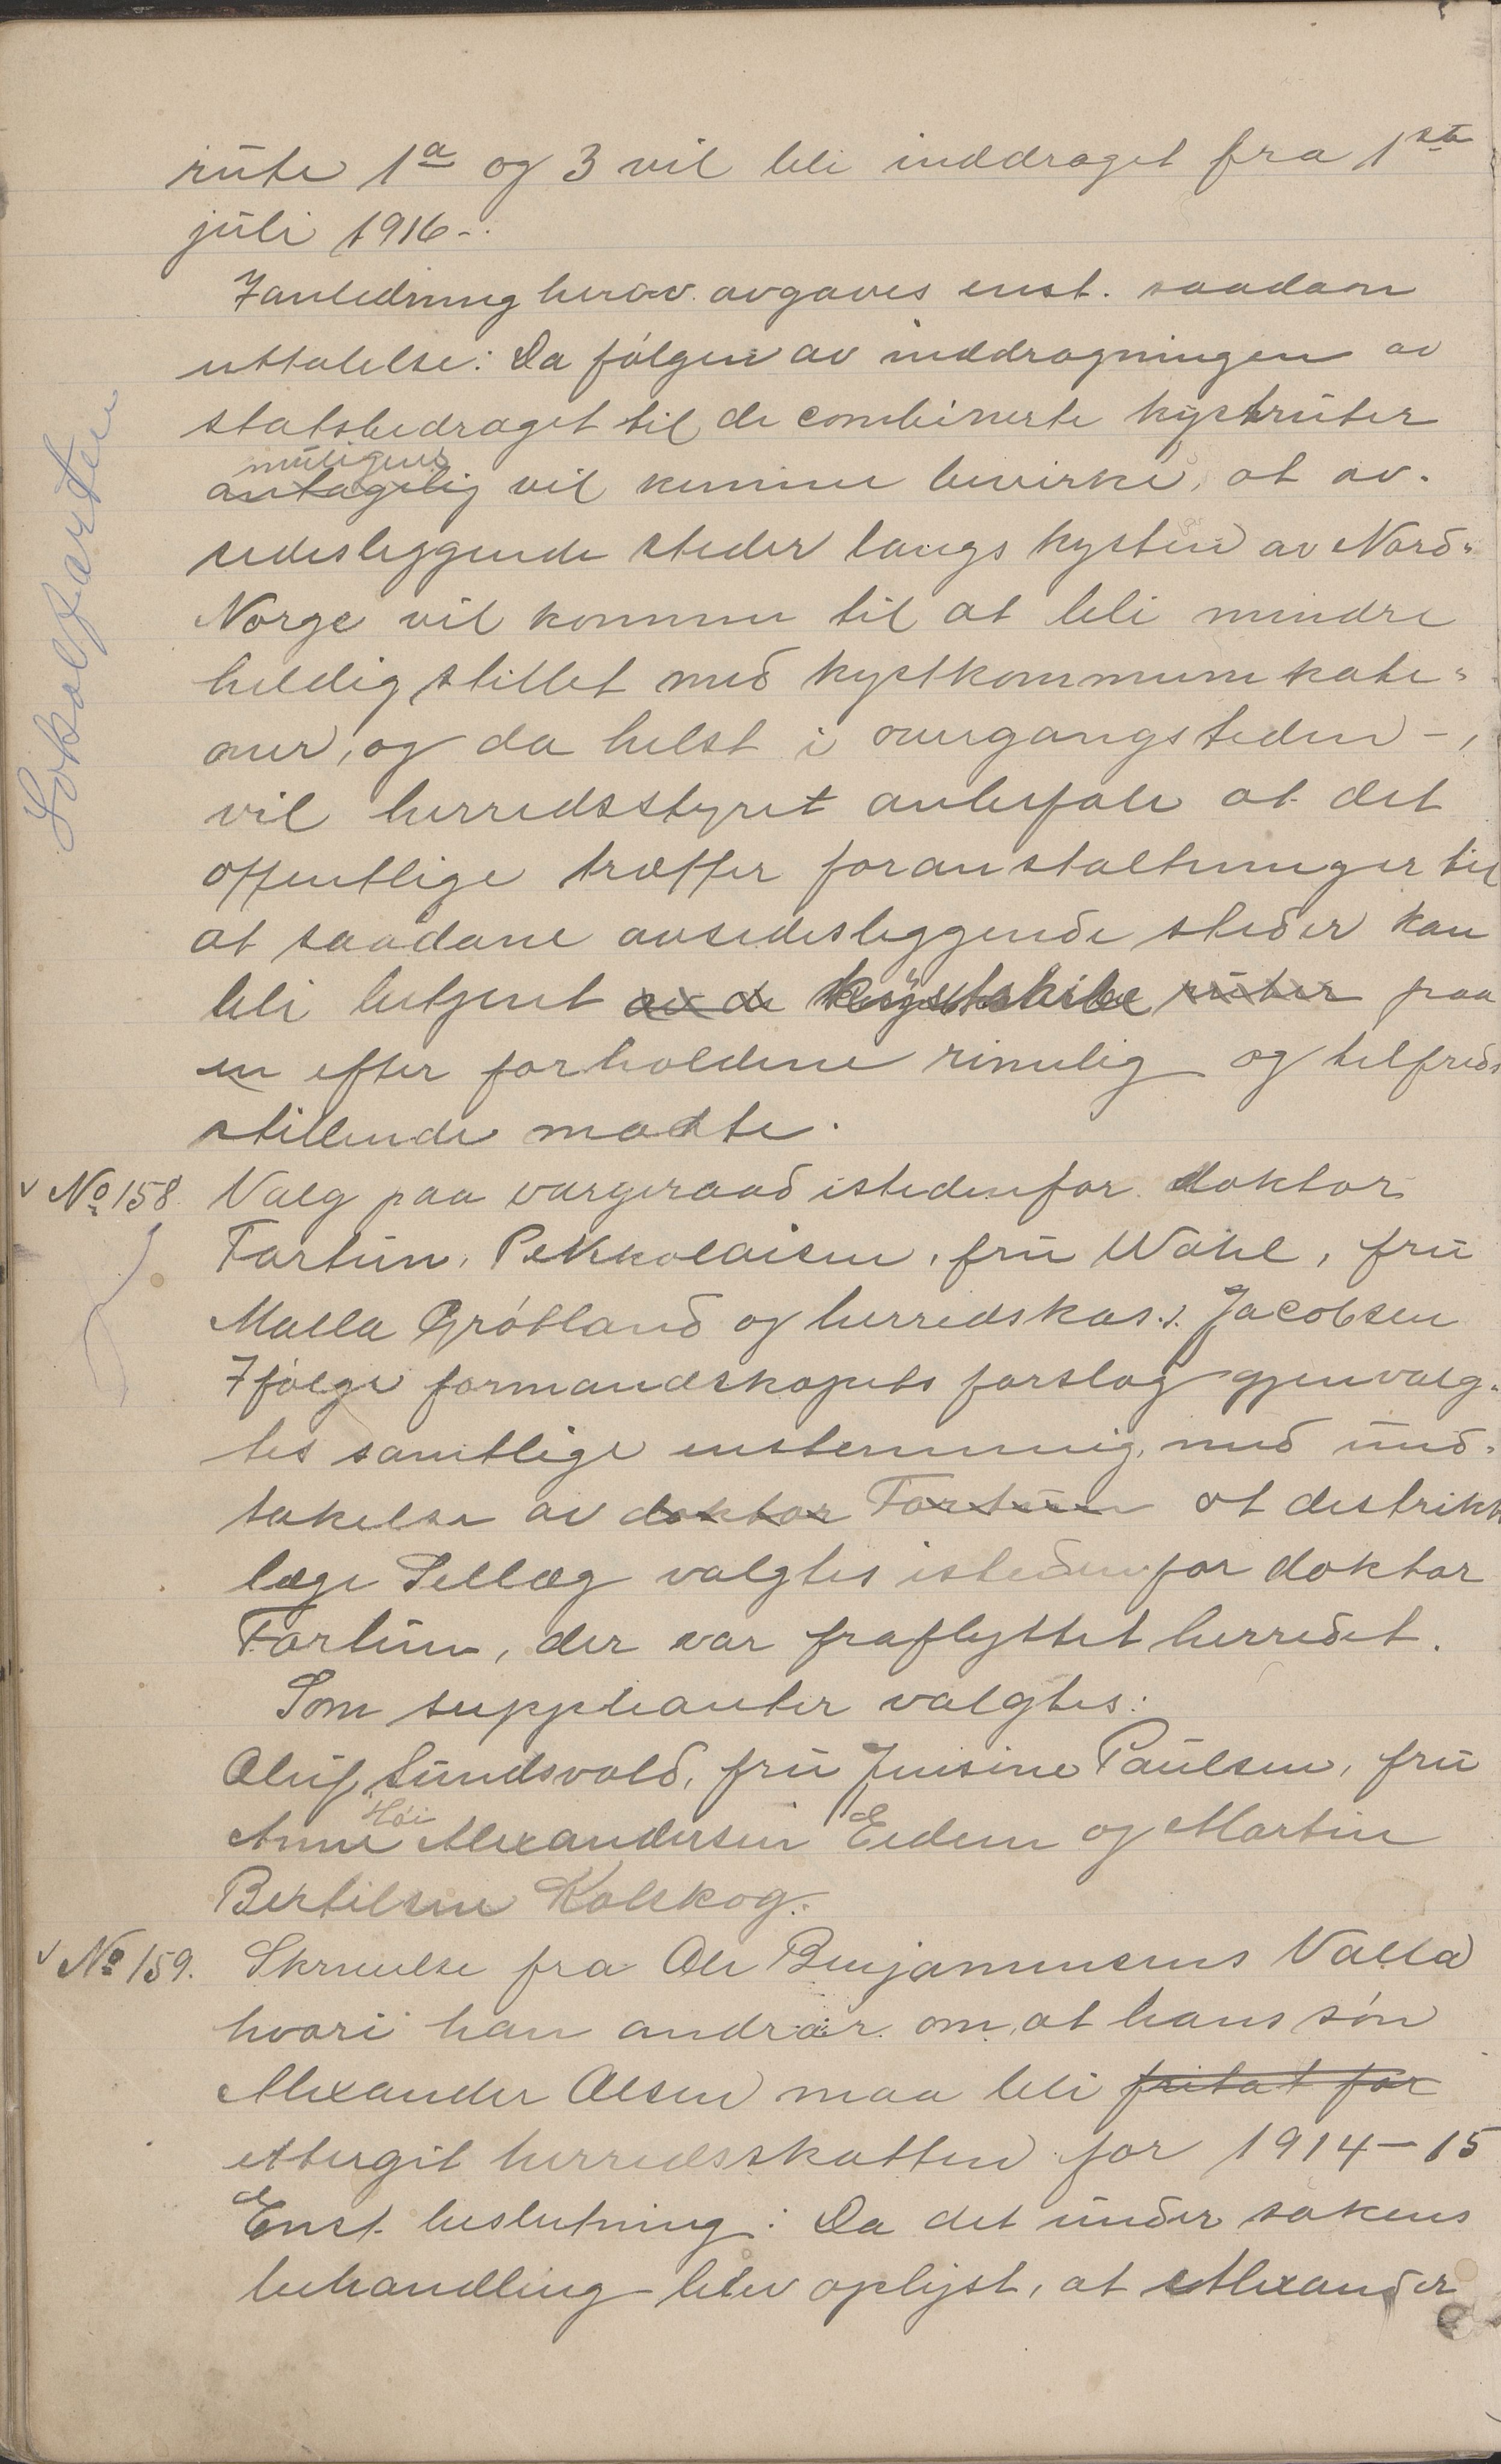 rute 1a og 3 vil bli inddraget fra 1ste
juli 1916-.
I anledning herav avgaves enst. saadan
uttalelse: Da følgen av inddragningen av
statsbedraget til de combinerte kystruter
muligens
antagelig vil kunne bevirke, at av-
sidesliggende steder langs kysten av Nord-
Norge vil komme til at bli mindre
heldig stillet med kystkommunikati-
oner, og da helst i overgangstiden -,
vil herredsstyret anbefale at det
offentlige træffer foranstaltninger til
at saadane avsidesliggende steder kan
bli betjent av de kystskibe ruter paa
en efter forholdene rimelig og tilfreds
stillende maate.
Lokalfarten
No 158. Valg paa værgeraad istedenfor doktor
Fortun, P. Nikolaisen, fru Wahl, fru
Malla Grøtland og herredskas.s. Jacobsen
Ifølge formandskapets forslag gjenvalg-
tes samtlige enstemmig, med und-
takelse av doktor Fortun at distrikts
læge Sellæg valgtes istedenfor doktor
Fortun, der var fraflyttet herredet.
Som suppleanter valgtes:
Oluf Sundsvold, fru Jensine Paulsen, fru
Høi
Anne Alexandersen Eidem og Martin
Bertilsen Kalskog.
No 159. Skrivelse fra Ole Benjaminsens Valla
hvori han andrar om, at hans søn
Alexander Olsen maa bli fritat for
ettergit herredsskatten for 1914-15
Enst. beslutning: Da det under sakens
behandling blev oplyst, at Alexander